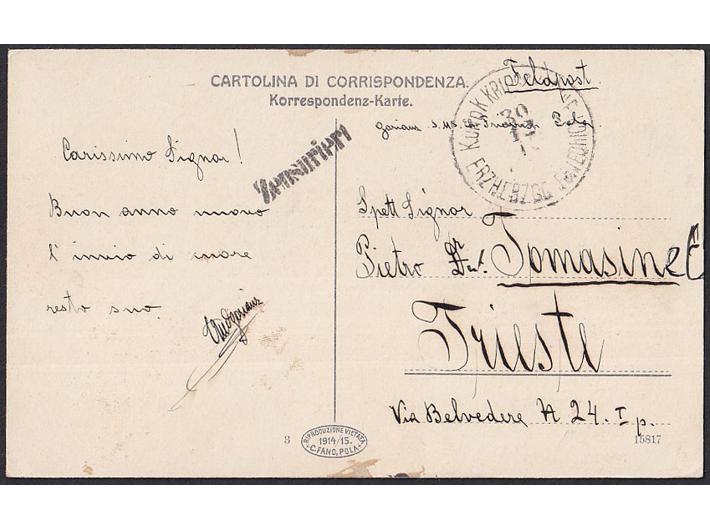 CARTOLINA DI CORRISPONDENZA.
Korrespondenz-Karte.
Feldpost
Zensuriert
K.u.K.
ERZHERZOG
30
Pola
Carissimo Signor!
Buon anno nuovo
l'invio di cuore
resto suo.
Spett Signor
Pietro Tomasine
Trieste
Via Belvedere N 24. I p.
3
RIPRODUZIONE VIETATA
1914/15.
C. FANO, POLA
15817